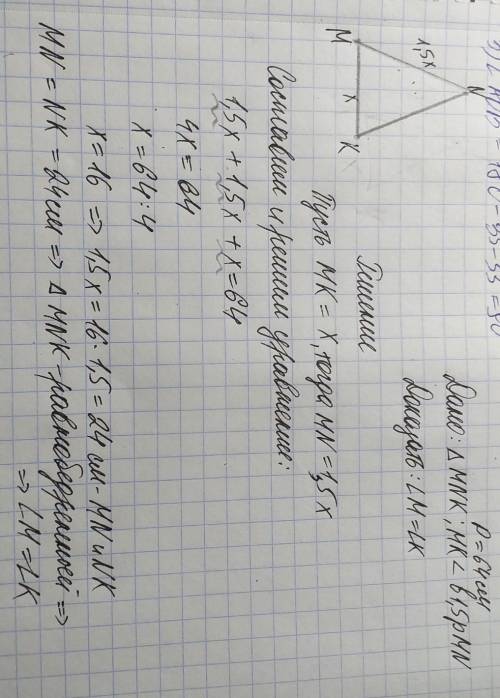 P = 64 см
Дано: Δ MNK; MK < в 1,5р MN
Доказать: ∠M = ∠K
N
1,5x
M
x
K
Решение
Пусть MK = x, тогда MN = 1,5x
Составим и решим уравнение:
1,5x + 1,5x + x = 64
4x = 64
x = 64 : 4
x = 16 => 1,5x = 16 · 1,5 = 24 см - MN и NK
MN = NK = 24 см => Δ MNK - равнобедренный =>
=> ∠M = ∠K